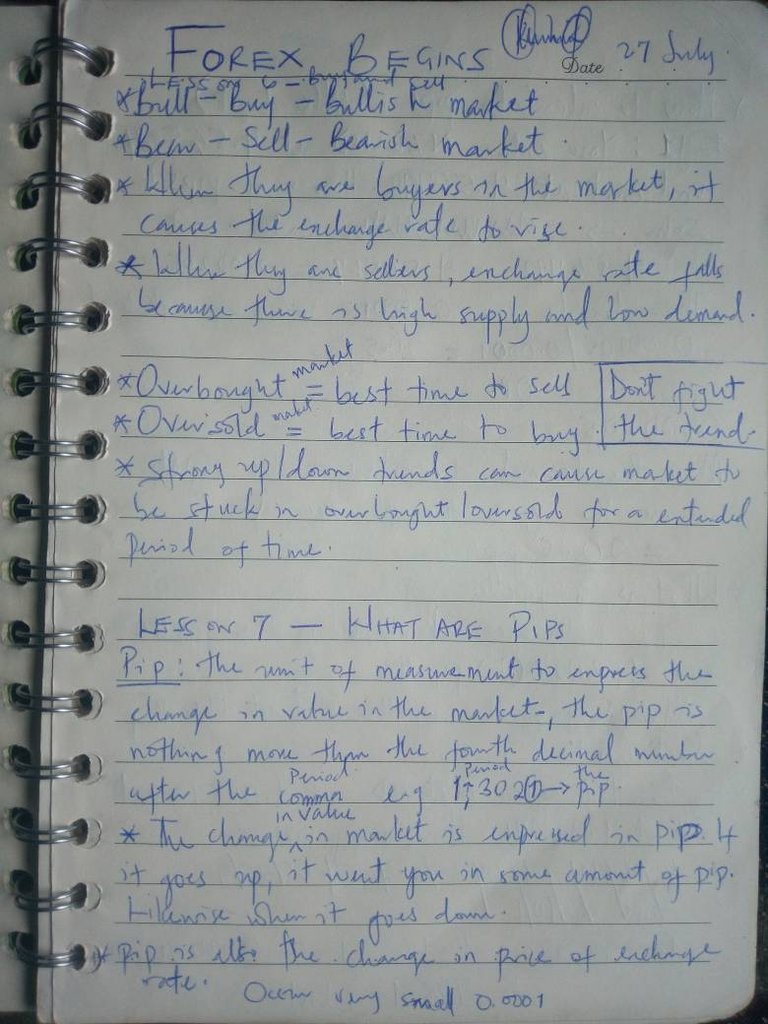 FOREX BEGINS
Date 27 July
LESSON 6 - buy and sell
* Bull - Buy - Bullish market
* Bear - Sell - Bearish market.
* When they are buyers in the market, it
causes the exchange rate to rise.
* When they are sellers, exchange rate falls
because there is high supply and low demand.
* Overbought market = best time to sell
* Oversold market = best time to buy.
Don't fight
the trend.
* Strong up/down trends can cause market to
be stuck in overbought/oversold for a extended
Period of time.
LESSON 7 - WHAT ARE PIPS
Pip: the unit of measurement to express the
change in value in the market, the pip is
nothing more than the fourth decimal number
after the comma Period e.g 1.3021 → the pip.
Period
* The change in value in market is expressed in pip. If
it goes up, it went up in some amount of pip.
Likewise when it goes down.
* Pip is also the change in price of exchange
rate.
very small 0.0001